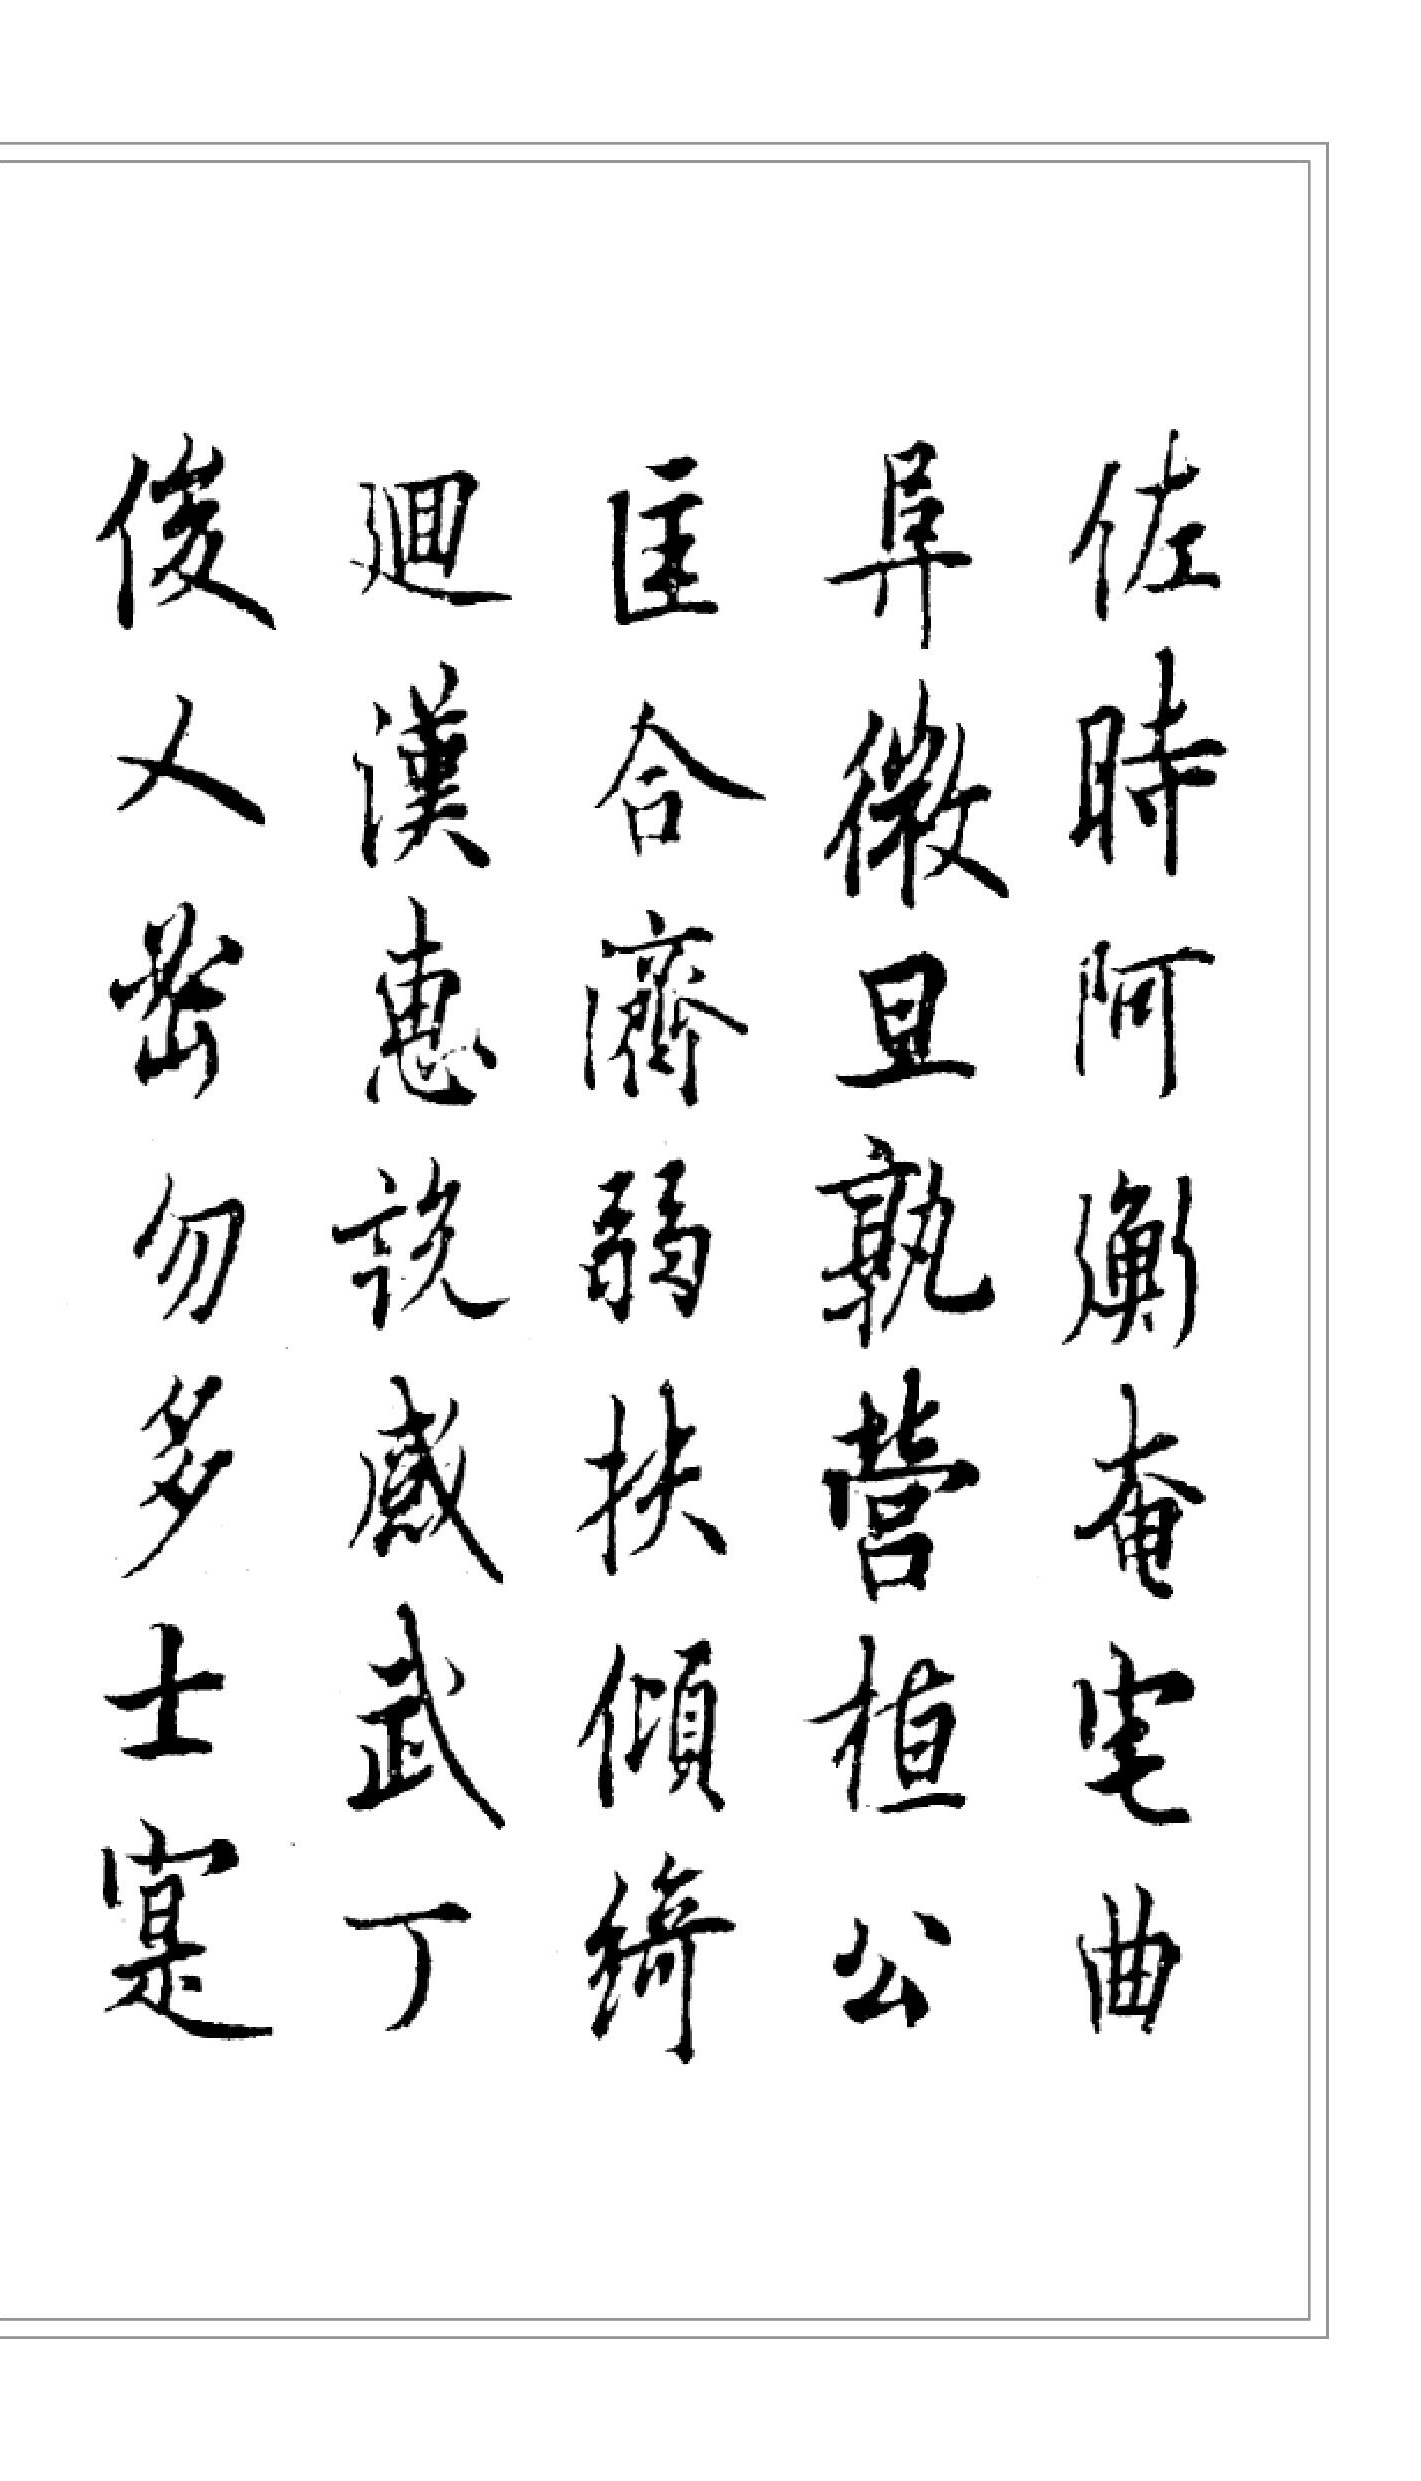 佐時阿衡奄宅曲
阜微旦孰營桓公
匡合濟弱扶傾綺
迴漢惠説感武丁
俊乂密勿多士寔